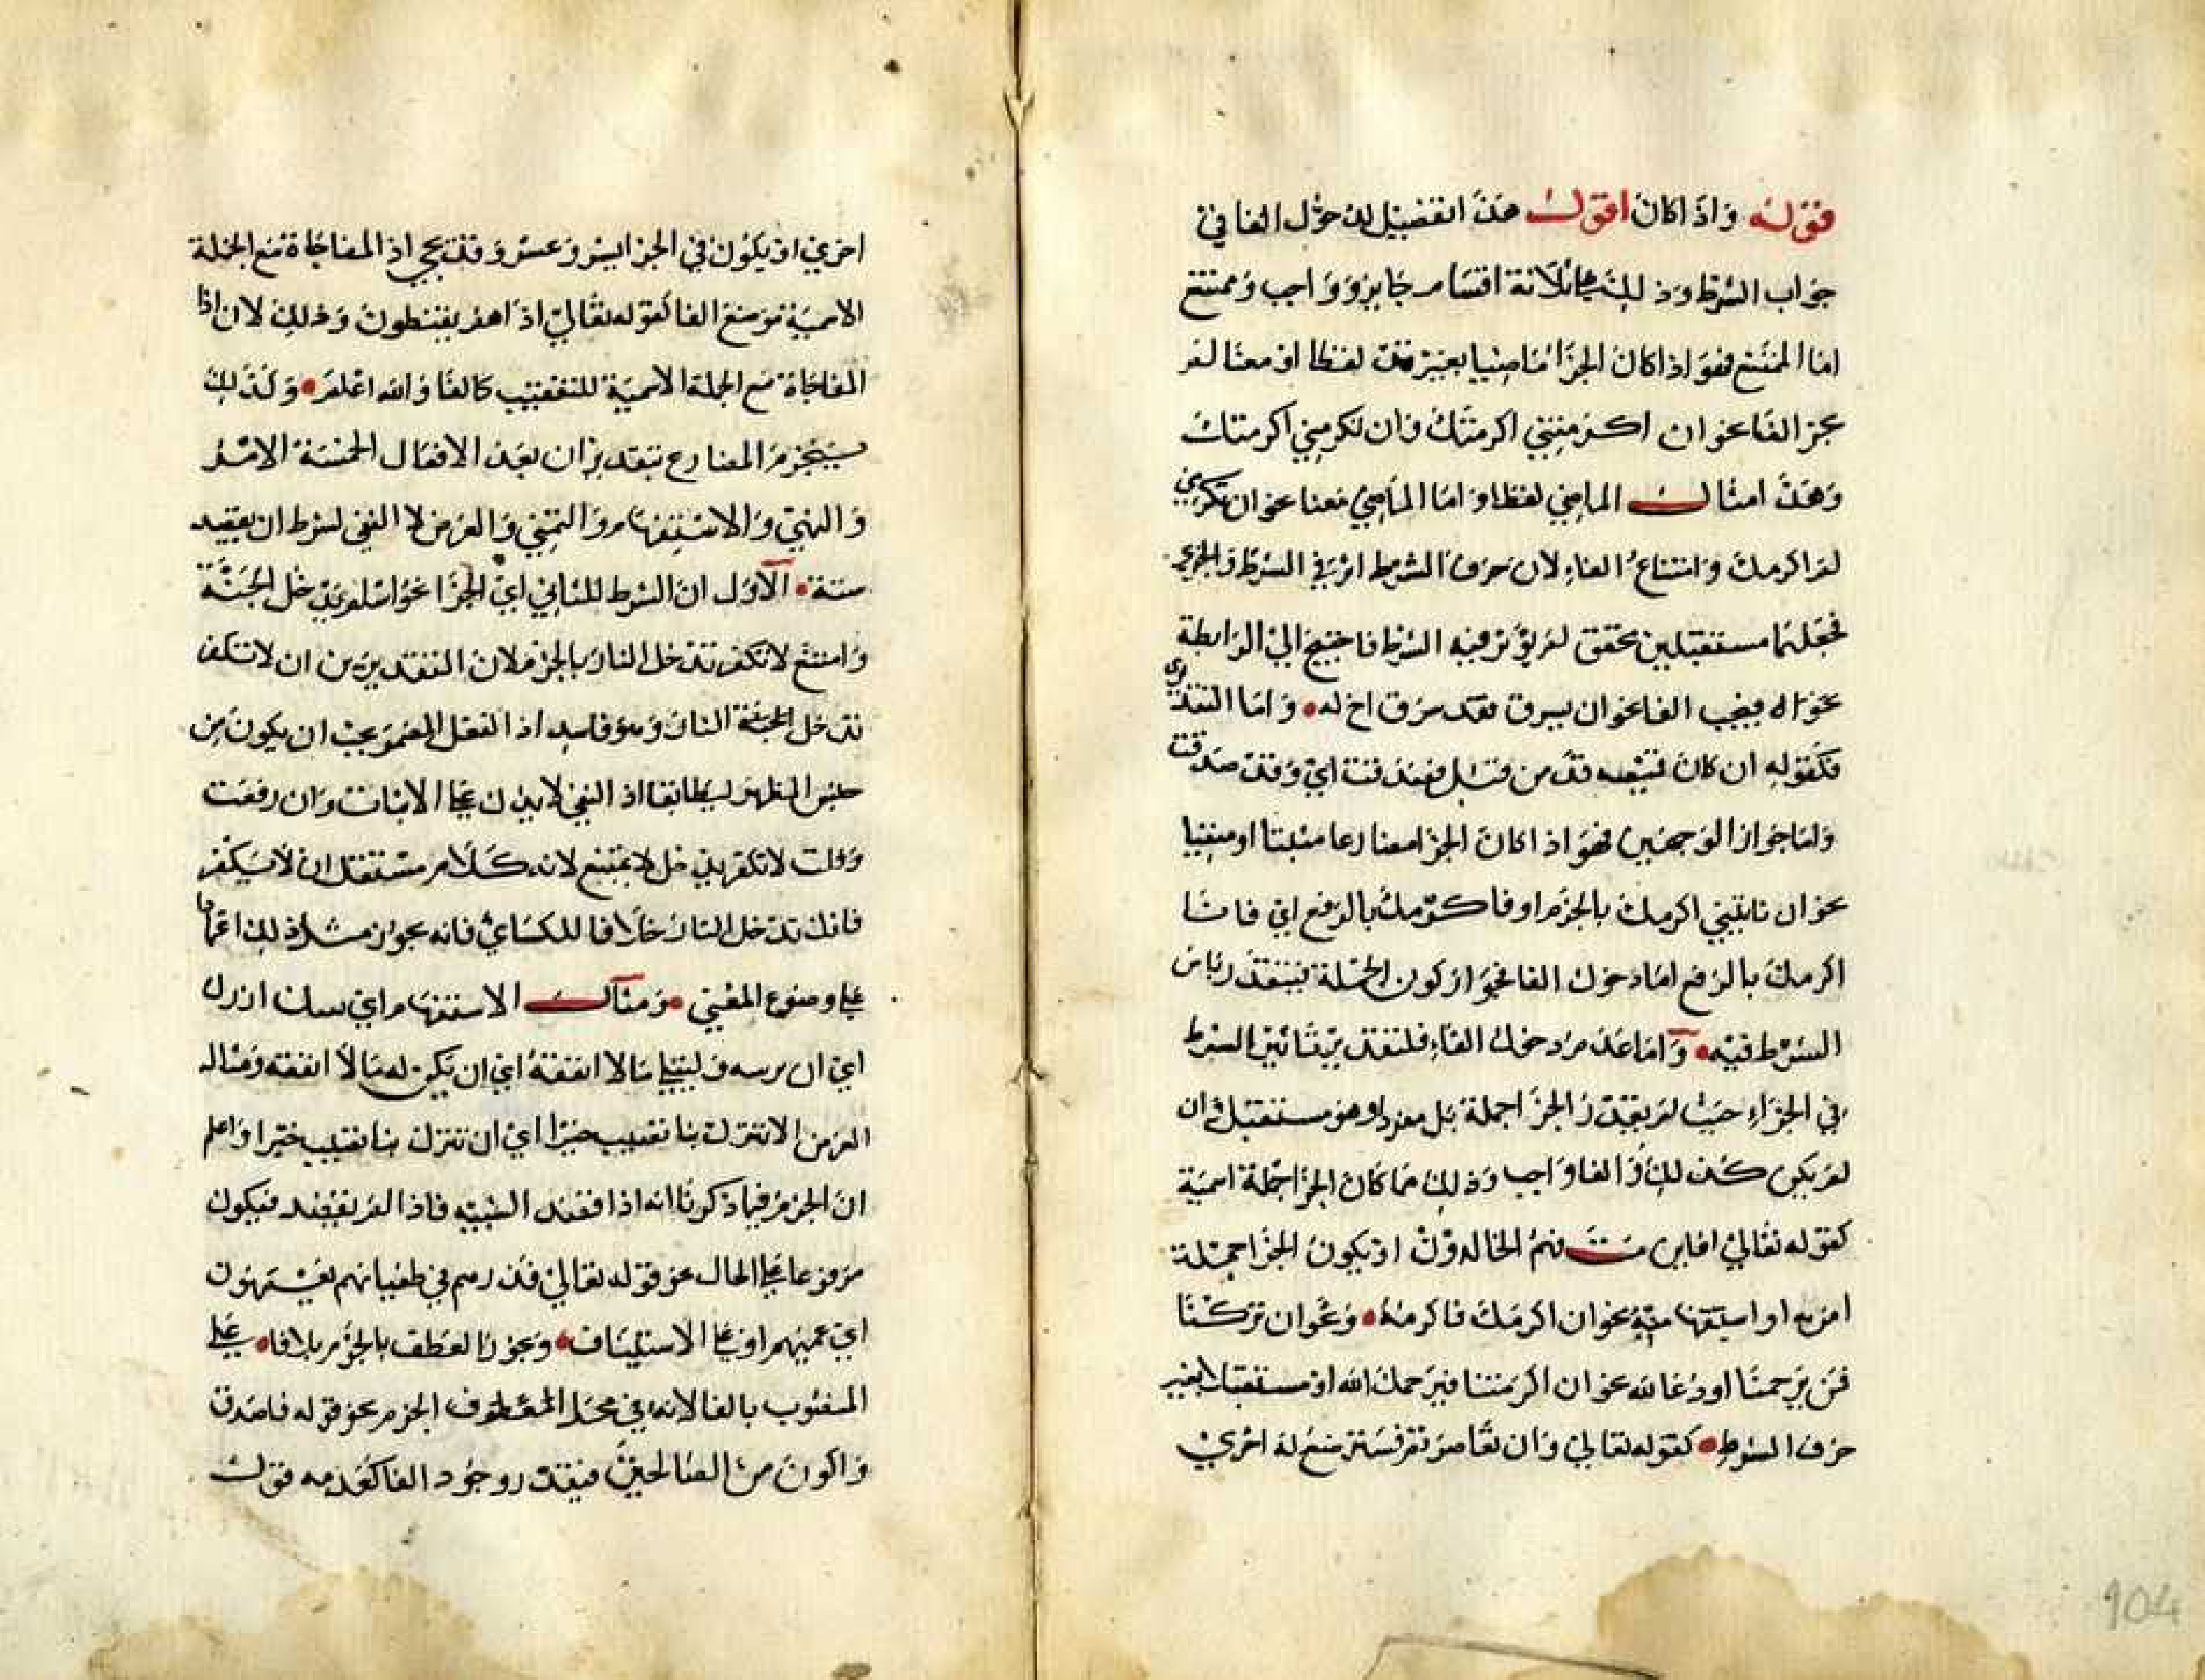 قوله واذا كان اقول هذا تفصيل لدخول الفا في
جواب الشرط وذلك على ثلاثة اقسام جايز وواجب وممتنع
اما الممتنع فهو اذا كان الجزا ماضيا بغير قد لفظا او معنا لم
يجز الفا نحو ان اكرمتني اكرمتك وان تكرمني اكرمتك
وهذا مثال الماضي لفظا واما الماضي معنا نحو ان تكرمني
لم اكرمك وامتناع الفاء لان حرف الشرط اثر في الشرط والجزي
فجعلهما مستقبلين تحقق لم يؤثر فيه الشرط فاحتيج الى الرابطة
نحو فيجب الفا نحو ان يسرق فقد سرق اخ له واما التقديري
فكقوله ان كان قميصه قد من قبل فصدقت اي وقد صدقت
واما جواز الوجهين فهو اذا كان الجزا مضارعا مثبتا او منفيا
نحو ان تاتيني اكرمك بالجزم او فاكرمك بالرفع اي فانا
اكرمك بالرفع اما دخول الفا فلجواز كون الجملة بتقدير
الشرط فيه واما عدم دخول الفاء فلتقدير تاثير الشرط
في الجزاء حيث لم يقدر الجزا جملة بل مفردا وهو مستقبل وان
لم يكن كذلك فالفا واجب وذلك مما كان الجزا جملة اسمية
كقوله تعالى افاين مت فهم الخالدون او يكون الجزا جملة
امرية او استفهامية نحو ان اكرمك فاكرمه ونحو ان تركتنا
فمن يرحمنا او دعا لله نحو ان اكرمتنا فيرحمك الله او مستقبلا بغير
حرف الشرط كقوله تعالى وان تعاسرتم فسترضع له اخري
اخري او يكون في الجزا ليس وعسى وقد يجي اذ المفاجاة مع الجملة
الاسمية موضع الفا كقوله تعالى اذا هم يقنطون وذلك لان اذا
المفاجاة مع الجملة الاسمية للتعقيب كالفا والله اعلم وكذلك
سينجزم المضارع بتقدير ان بعد الافعال الخمسة الامر
والنهي والاستفهام والتمني والعرض لا النفي لشرط ان يقصد
ستة الاول ان الشرط للثاني اي الجزا نحو اسلم تدخل الجنة
وامتنع لا تكفر تدخل النار بالجزم لان التقدير من ان لا تكفر
تدخل الجنة النار وهو فاسد اذ الفعل المضمر يجب ان يكون من
جنس المظهر ليطابقا اذ النفي لا يدل على الاثبات وان رفعت
وقلت لا تكفر تدخل لا يمتنع لانه كلام مستقل ان لا تكفر
فانك تدخل النار خلافا للكسائي فانه يجوز مثل ذلك اعتمادا
على وضوع المعني ومثال الاستفهام اين بيتك ازرك
اي ان وليت لي مالا انفقه اي ان يكن له مالا انفقه ومثاله
العرض الا تنزل بنا تصيب خيرا اي ان تنزل بنا تصيب خيرا واعلم
ان الجزم فيما ذكرنا انه اذا قصد السببيه فاذا لم يقصد فيكون
مرفوعا على الحال نحو قوله تعالى فذرهم في طغيانهم يعمهون
اي عميهم او على الاستيناف ويجوز العطف بالجزم بلا فا على
المنصوب بالفا لانه في محل المعطوف الجزم نحو قوله فاصدق
واكون من الصالحين فيقدر وجود الفا كعدمه قوله